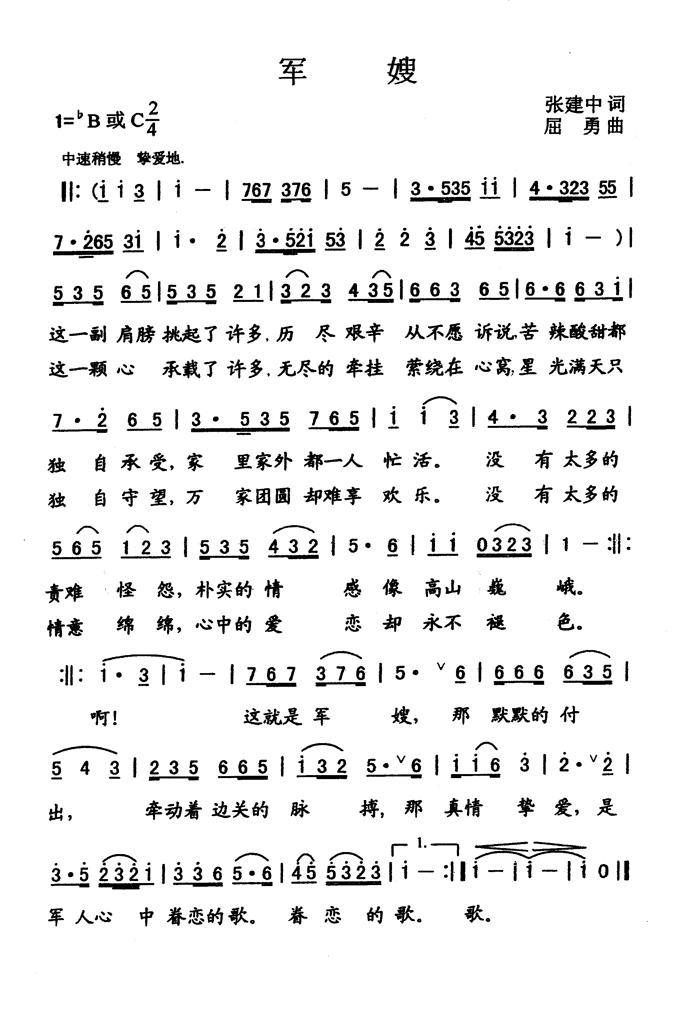 军 嫂
1=♭B 或 C 2/4
张建中 词
屈 勇 曲
中速稍慢 挚爱地.
‖: (i i 3 | i － | 767 376 | 5 － | 3·535 i i | 4·323 55 |
7·265 3i | i· 2 | 3·52i 53 | 2 2 3 | 45 5323 | i － )|
535 65 | 535 21 | 323 435 | 663 65 | 6·6 63i |
这一副 肩膀 挑起了 许多, 历 尽 艰辛 从不愿 诉说, 苦 辣酸甜都
这一颗 心 承载了 许多, 无尽的 牵挂 萦绕在 心窝, 星 光满天只
7· 2 65 | 3· 535 765 | i i3 | 4· 3 223 |
独 自 承 受, 家 里家外 都一人 忙 活。 没 有 太多的
独 自 守 望, 万 家团圆 却难享 欢 乐。 没 有 太多的
565 123 | 535 432 | 5· 6 | i i 0323 | 1 － :‖:
责难 怪 怨, 朴实的 情 感 像 高山 巍 峨。
情意 绵 绵, 心中的 爱 恋 却 永不 褪 色。
:‖: i· 3 | i － | 767 376 | 5· ∨ 6 | 666 635 |
啊! 这就是 军 嫂, 那 默默的 付
5 4 3 | 235 665 | i32 5·∨6 | i i6 3 | 2·∨2 |
出, 牵动着 边关的 脉 搏, 那 真情 挚 爱, 是
3·5 232i | 336 5·6 | 45 5323 | 1. i － :‖ i － | i － | i 0 ‖
军 人心 中 眷恋的 歌。 眷 恋 的 歌。 歌。